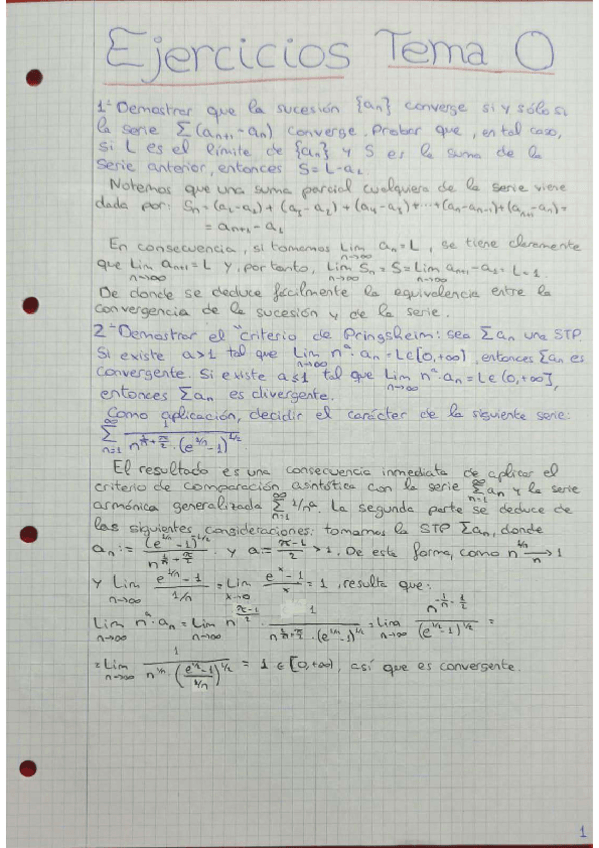 Ejercicios Tema 0
1- Demostrar que la sucesión {an} converge si y sólo si
la serie Σ(an+1 - an) converge. Probar que, en tal caso,
si L es el límite de {an} y S es la suma de la
serie anterior, entonces S = L - a1.
Notemos que una suma parcial cualquiera de la serie viene
dada por: Sn = (a2 - a1) + (a3 - a2) + (a4 - a3) + ... + (an - an-1) + (an+1 - an) =
= an+1 - a1
En consecuencia, si tomamos Lim n→∞ an = L, se tiene claramente
que Lim n→∞ an+1 = L y, por tanto, Lim n→∞ Sn = S = Lim n→∞ an+1 - a1 = L - 1.
De donde se deduce fácilmente la equivalencia entre la
convergencia de la sucesión y de la serie.
2- Demostrar el "criterio de Pringsheim: sea Σan una STP.
Si existe a>1 tal que Lim n→∞ n^a · an = L ∈ [0,+∞), entonces Σan es
convergente. Si existe a≤1 tal que Lim n→∞ n^a · an = L ∈ (0,+∞],
entonces Σan es divergente.
Como aplicación, decidir el carácter de la siguiente serie:
Σ n=1 ∞ 1 / (n^(1/n + π/2) · (e^(1/n) - 1)^(1/2))
El resultado es una consecuencia inmediata de aplicar el
criterio de comparación asintótica con la serie Σ n=1 ∞ an y la serie
armónica generalizada Σ n=1 ∞ 1/n^a. La segunda parte se deduce de
las siguientes consideraciones: tomamos la STP Σan, donde
an := (e^(1/n) - 1)^(1/2) / n^(1/n + π/2) y a = (π-1)/2 > 1. De esta forma, como n^(1/n) → 1
y Lim n→∞ (e^(1/n) - 1) / (1/n) = Lim x→0 (e^x - 1) / x = 1, resulta que:
Lim n→∞ n^a · an = Lim n→∞ n^((π-1)/2) · 1 / (n^(1/n + π/2) · (e^(1/n) - 1)^(1/2)) = Lim n→∞ n^(-1/n - 1/2) / (e^(1/n) - 1)^(1/2) =
= Lim n→∞ 1 / (n^(1/n) · ((e^(1/n) - 1) / (1/n))^(1/2)) = 1 ∈ [0,+∞), así que es convergente.
1